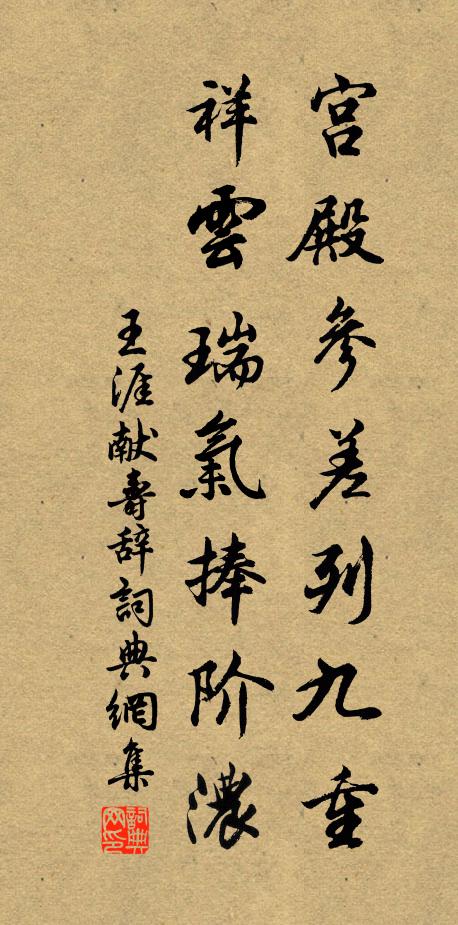 宫殿參差列九重
祥雲瑞氣捧阶濃
王涯献壽辞詞典網集
詞典网印